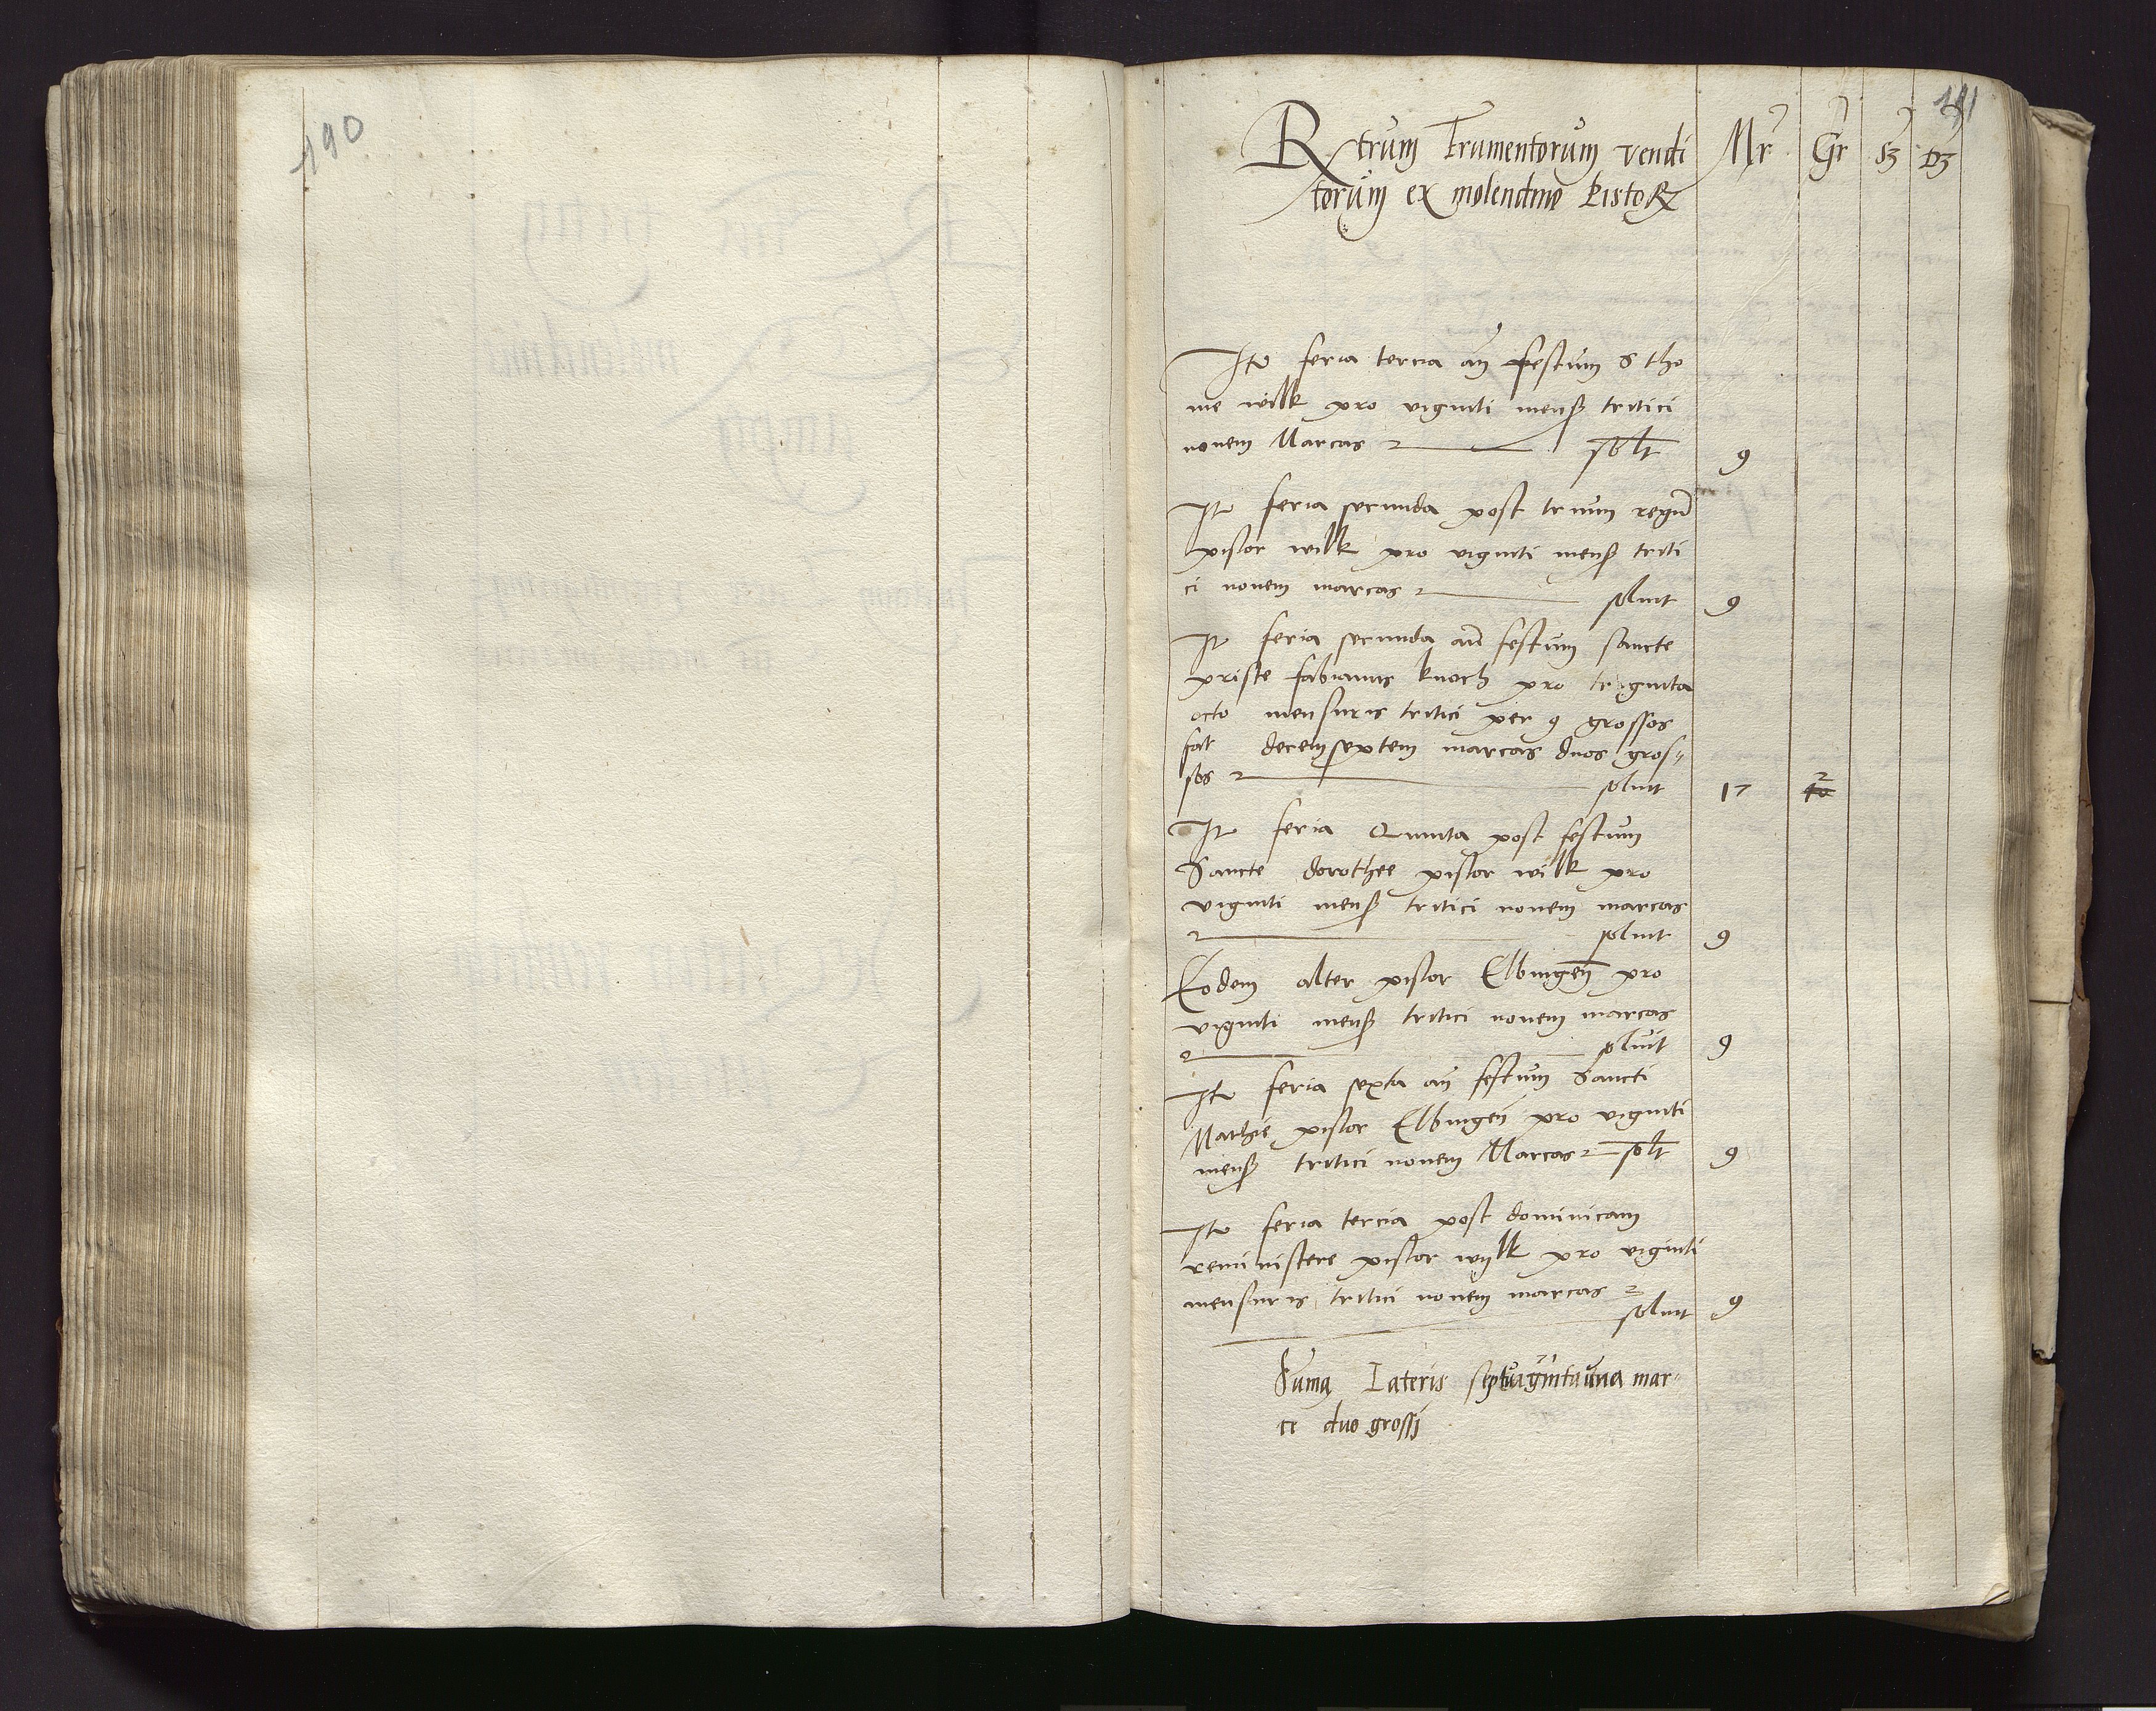 190
191
Rtrum frumentorum vendi Mr Gr sz dz
torum ex molendino pistoR
Ite feria tercia an festum S tho
me wilk pro viginti mens tritici
nonem Marcas solt 9
It feria secunda post trium regu
pistor wilk pro viginti mens triti
ci nonem marcas soluit 9
It feria secunda an festum sancte
priste fabianus knoch pro triginta
octo mensuris tritici per 9 grossos
fat decemseptem marcas duos gros"
sos soluit 17 2
It feria Quinta post festum
Sancte dorothee pistor wilk pro
viginti mens tritici nonem marcas
soluit 9
Eodem alter pistor Elbingen pro
viginti mens tritici nonem marcas
soluit 9
Ite feria sexta an festum Sancti
Mathie pistor Elbingen pro viginti
mens tritici nonem Marcas solt 9
Ite feria tercia post dominicam
reministere pistor wylk pro viginti
mensuris tritici nonem marcas
soluit 9
Suma Lateris septuagintauna mar"
ce duo grossi